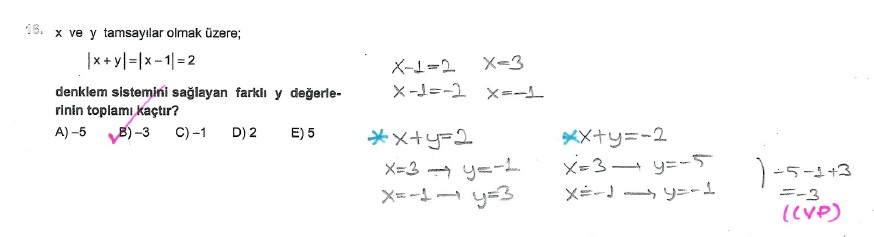 16. x ve y tamsayılar olmak üzere;
|x + y| = |x – 1| = 2
denklem sistemini sağlayan farklı y değerle-
rinin toplamı kaçtır?
A) –5 B) –3 C) –1 D) 2 E) 5
x-1=2 x=3
x-1=-2 x=-1
* x+y=2
x=3 → y=-1
x=-1 → y=3
* x+y=-2
x=3 → y=-5
x=-1 → y=-1
) -5-1+3
=-3
((VP)